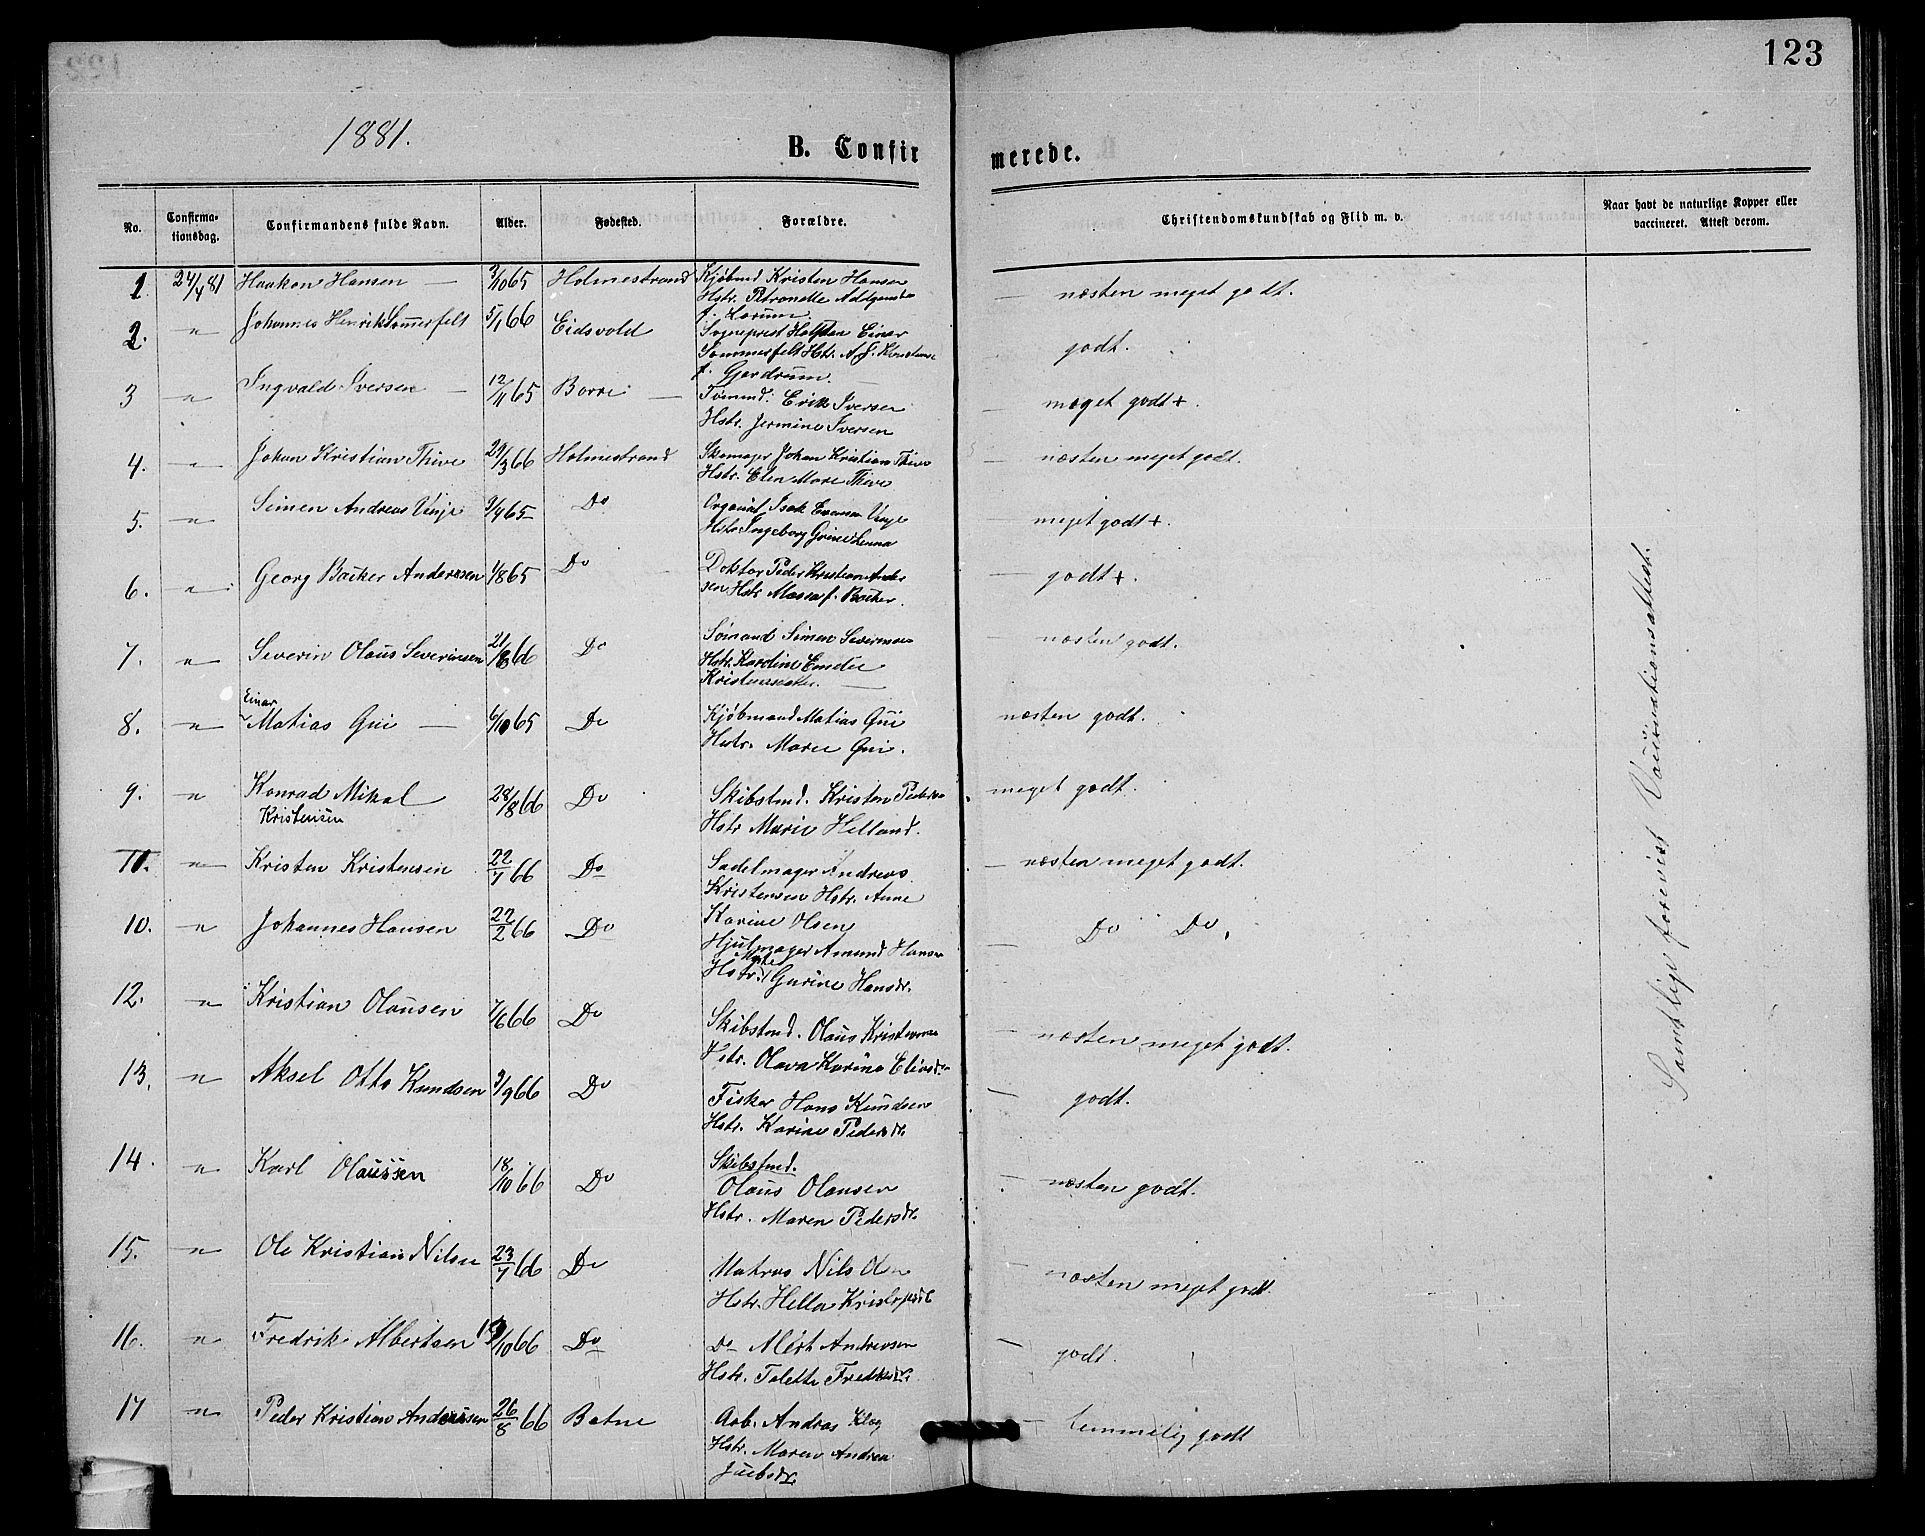 123
1881.
B. Confirmerede.
No.
Confirma-
tionsdag.
Confirmandens fulde Navn.
Alder.
Fødested.
Forældre.
Christendomskundskab og Flid m. v.
Naar havt de naturlige Kopper eller
vaccineret. Attest derom.
1. 24/4 81 Haakon Hansen — 3/10 65 Holmestrand Kjøbmd Kristen Hansen — næsten meget godt.
Hstr. Petronelle
f. Larum
2. " Johannes Henrik Sommerfelt 5/1 66 Eidsvold Sogneprest Halfdan Einar godt.
Sommerfelt Hstr. A. J.
f. Gjerdrum.
3 " Ingvald Iversen — 12/11 65 Borre — Tømmd. Erik Iversen — meget godt +.
Hstr. Jermine Iversen
4. " Johan Kristian Thive 29/3 66 Holmestrand Skomager Johan Kristian Thive — næsten meget godt.
Hstr. Elen Marie Thive
5. " Simen Andreas Vinje 9/4 65 Do Organist Isak Vinje — meget godt +.
Hstr. Ingeborg
6. " Georg Backer Anderssen 1/8 65 Do Doktor Peder Kristian Ander — godt +.
sen Hstr. f. Backer.
7. " Severin Olaus Severinsen 21/8 66 Do Sømand Simen Severinsen — næsten godt.
Hstr. Kardine Emilie
8. " Einar
Matias Gui — 6/10 65 Do Kjøbmand Matias Gui næsten godt.
Hstr. Maren Gui.
9. " Konrad Mikal 28/8 66 Do Skibstmd. Kristen Pedersen meget godt.
Kristensen Hstr Marie Helland.
11. " Kristen Kristensen 22/7 66 Do Sadelmager Andreas — næsten meget godt.
Kristensen Hstr. Anne
Karine Olsen
10. " Johannes Hansen 22/2 66 Do Hjulmager Amund Hansen — Do Do.
Hstr. Gurine Hansdr.
12. " Kristian Olausen 7/6 66 Do Skibstmd. Olaus — næsten meget godt.
Hstr. Olava Karine
13. " Aksel Otto Knudsen 3/9 66 Do Fisker Hans Knudsen — godt.
Hstr. Karine Pedersdr.
14. " Karl Olaussen 18/10 66 Do Skibstmd. — næsten godt.
Olaus Olausen
Hstr. Maren Pedersdr.
15. " Ole Kristian Nilsen 23/7 66 Do Matros Nils Olsen — næsten meget godt.
Hstr. Hella
16. " Fredrik Albertsen 19/10 66 Do Do Albert Andreassen — godt.
Hstr. Tolette
17 " Peder Kristian Anderssen 26/8 66 Botne Arb. Andras — temmelig godt
Hstr. Maren Andrea
Samtlige forevist Vaccinationsattest.